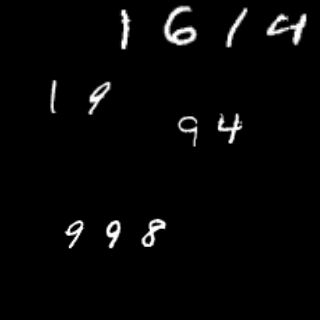 1614
19
94
998